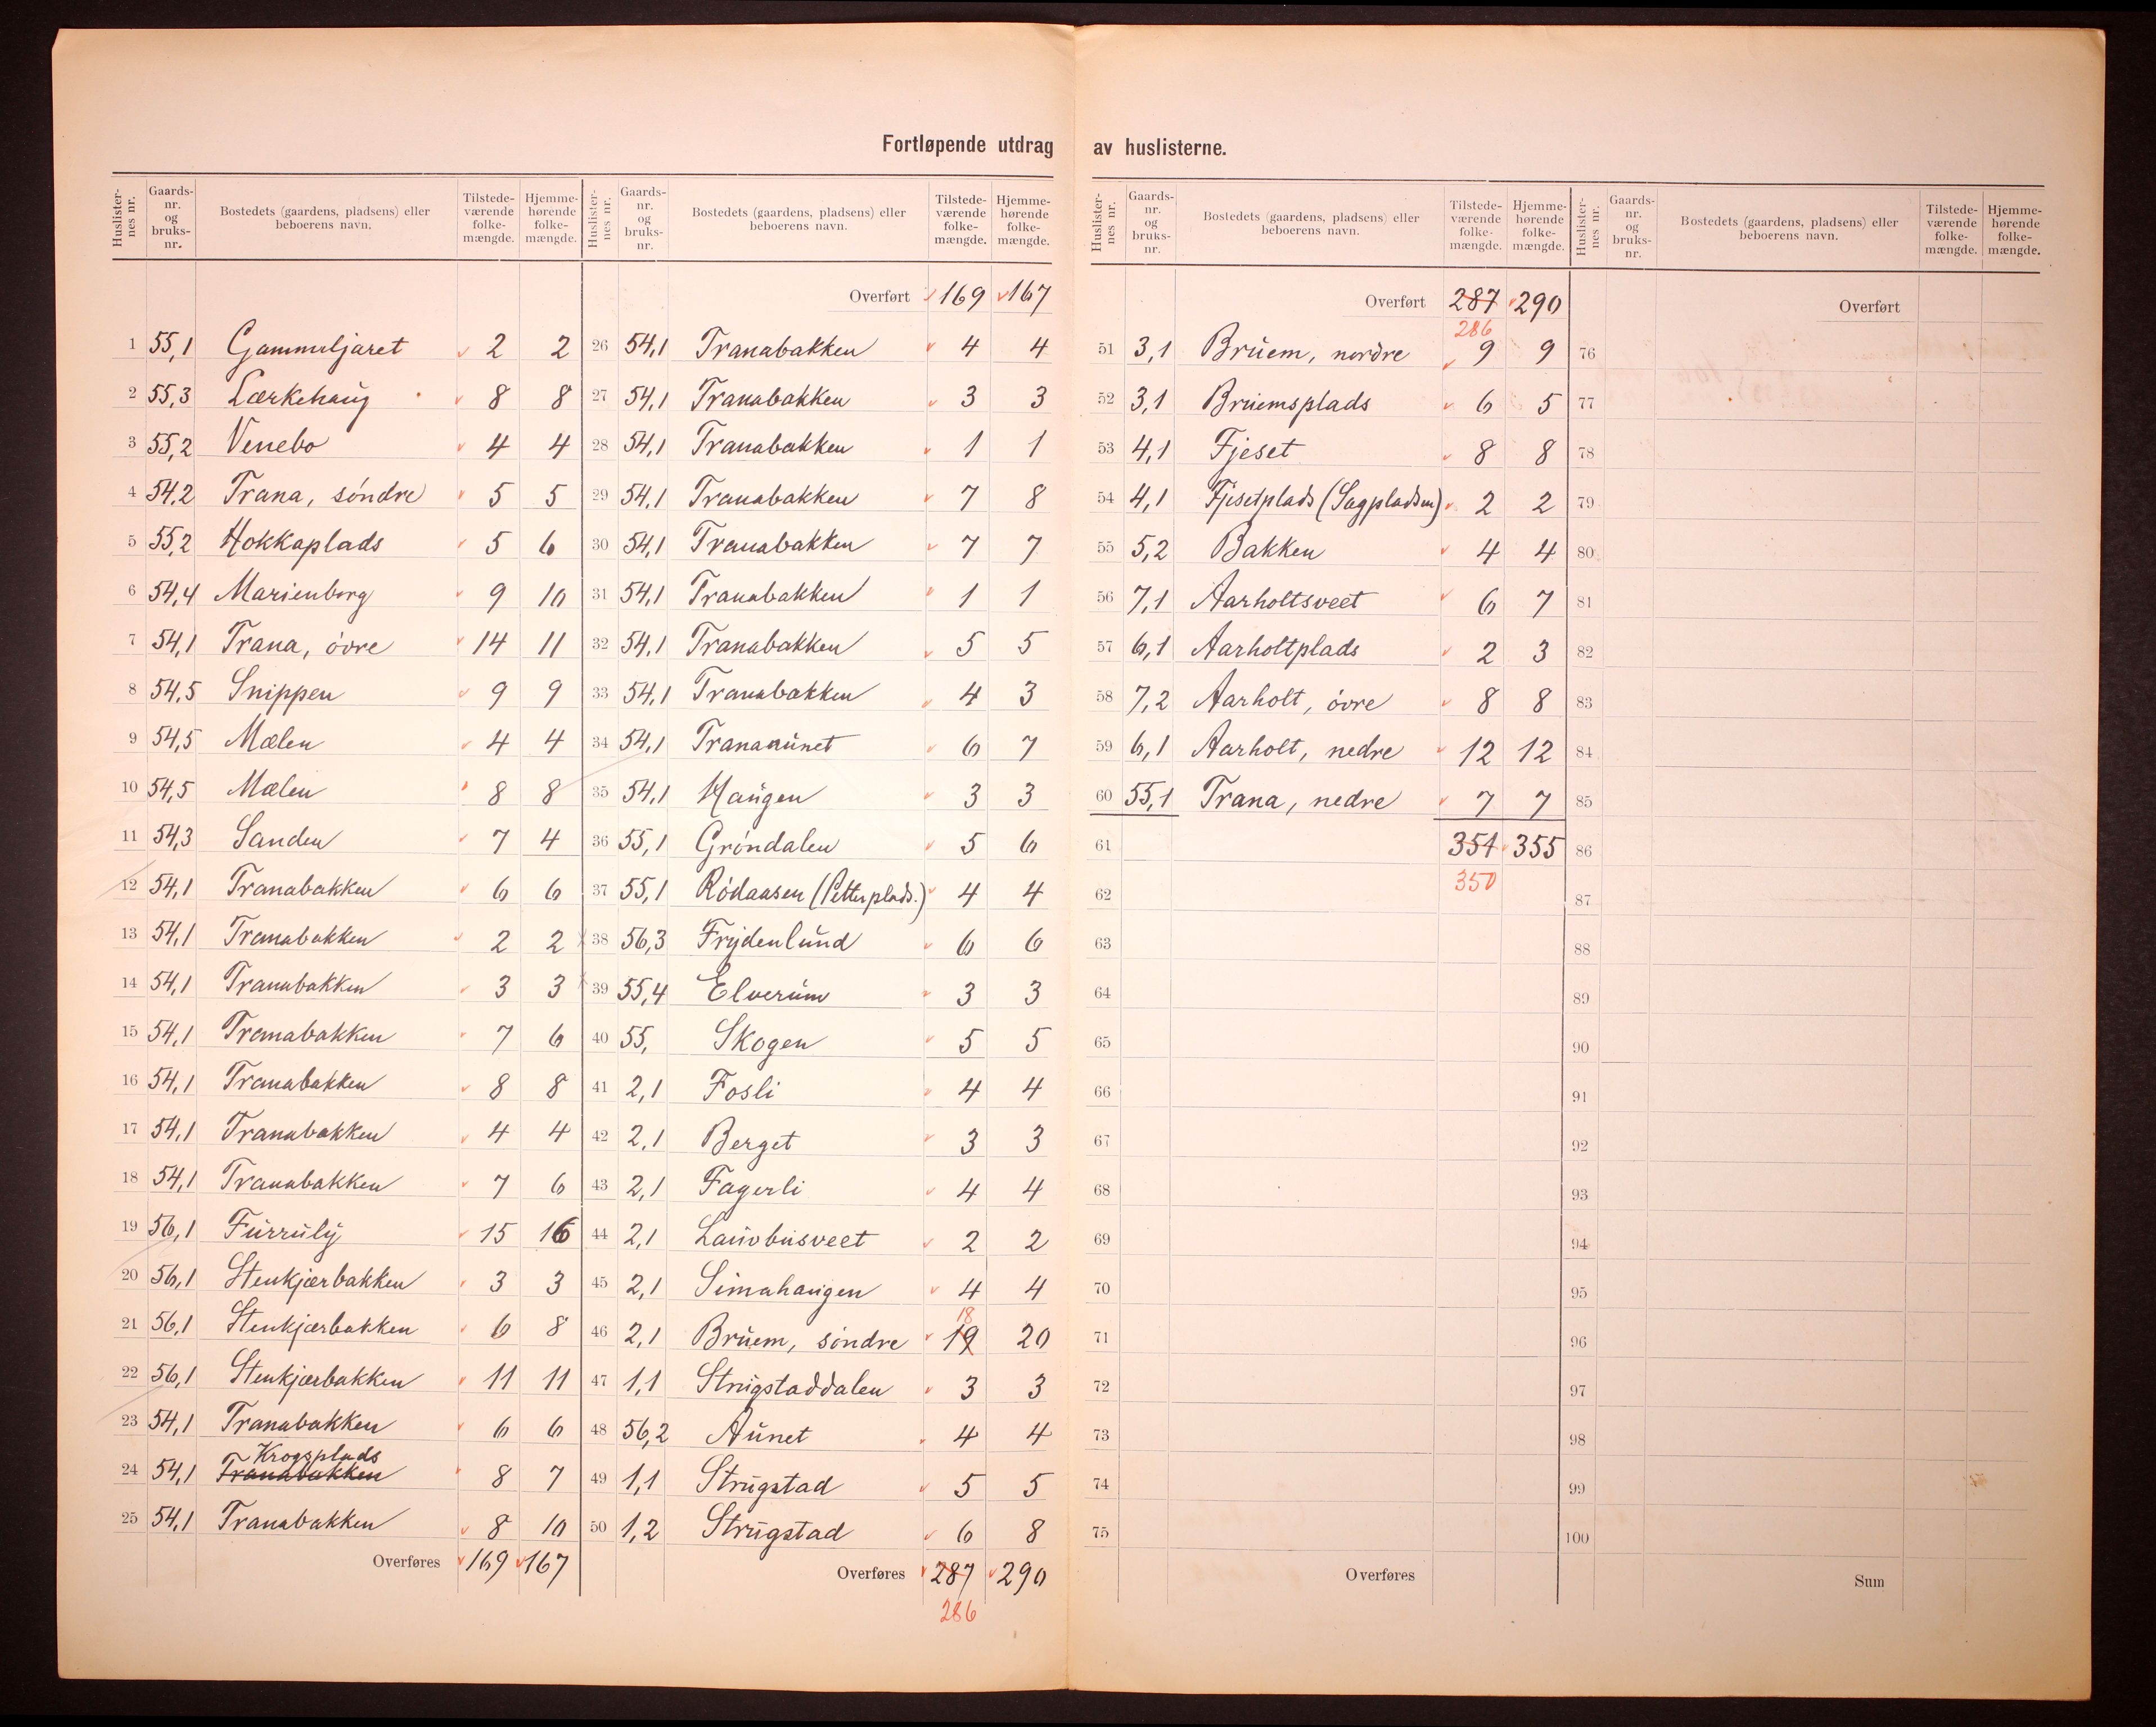 Fortløpende utdrag av huslisterne.
Huslisternes nr. Gaards-nr. og bruks-nr. Bostedets (gaardens, pladsens) eller beboerens navn. Tilstede-værende folke-mængde. Hjemme-hørende folke-mængde.
1 55,1 Gammeljaret 2 2
2 55,3 Lærkehaug 8 8
3 55,2 Venebo 4 4
4 54,2 Trana, söndre 5 5
5 55,2 Hokkaplads 5 6
6 54,4 Marienborg 9 10
7 54,1 Trana, övre 14 11
8 54,5 Snippen 9 9
9 54,5 Mælen 4 4
10 54,5 Mælen 8 8
11 54,3 Sanden 7 4
12 54,1 Tranabakken 6 6
13 54,1 Tranabakken 2 2
14 54,1 Tranabakken 3 3
15 54,1 Tranabakken 7 6
16 54,1 Tranabakken 8 8
17 54,1 Tranabakken 4 4
18 54,1 Tranabakken 7 6
19 56,1 Furruly 15 16
20 56,1 Stenkjærbakken 3 3
21 56,1 Stenkjærbakken 6 8
22 56,1 Stenkjærbakken 11 11
23 54,1 Tranabakken 6 6
Krogsplads
24 54,1 Tranabakken 8 7
25 54,1 Tranabakken 8 10
Overføres 169 167
Huslisternes nr. Gaards-nr. og bruks-nr. Bostedets (gaardens, pladsens) eller beboerens navn. Tilstede-værende folke-mængde. Hjemme-hørende folke-mængde.
Overført 169 167
26 54,1 Tranabakken 4 4
27 54,1 Tranabakken 3 3
28 54,1 Tranabakken 1 1
29 54,1 Tranabakken 7 8
30 54,1 Tranabakken 7 7
31 54,1 Tranabakken 1 1
32 54,1 Tranabakken 5 5
33 54,1 Tranabakken 4 3
34 54,1 Tranaaunet 6 7
35 54,1 Haugen 3 3
36 55,1 Gröndalen 5 6
37 55,1 Rödaasen (Petterplads.) 4 4
38 56,3 Frydenlund 6 6
39 55,4 Elverum 3 3
40 55, Skogen 5 5
41 2,1 Fosli 4 4
42 2,1 Berget 3 3
43 2,1 Fagerli 4 4
44 2,1 Lauvbusveet 2 2
45 2,1 Simahaugen 4 4
18
46 2,1 Bruem, söndre 19 20
47 1,1 Strugstaddalen 3 3
48 56,2 Aunet 4 4
49 1,1 Strugstad 5 5
50 1,2 Strugstad 6 8
Overføres 287 290
286
Huslisternes nr. Gaards-nr. og bruks-nr. Bostedets (gaardens, pladsens) eller beboerens navn. Tilstede-værende folke-mængde. Hjemme-hørende folke-mængde.
Overført 287 290
286
51 3,1 Bruem, nordre 9 9
52 3,1 Bruemsplads 6 5
53 4,1 Fjeset 8 8
54 4,1 Fjesetplads (Sagpladsen) 2 2
55 5,2 Bakken 4 4
56 7,1 Aarholtsveet 6 7
57 6,1 Aarholtplads 2 3
58 7,2 Aarholt, övre 8 8
59 6,1 Aarholt, nedre 12 12
60 55,1 Trana, nedre 7 7
61 351 355
62 350
63
64
65
66
67
68
69
70
71
72
73
74
75
Overføres
Huslisternes nr. Gaards-nr. og bruks-nr. Bostedets (gaardens, pladsens) eller beboerens navn. Tilstede-værende folke-mængde. Hjemme-hørende folke-mængde.
Overført
76
77
78
79
80
81
82
83
84
85
86
87
88
89
90
91
92
93
94
95
96
97
98
99
100
Sum